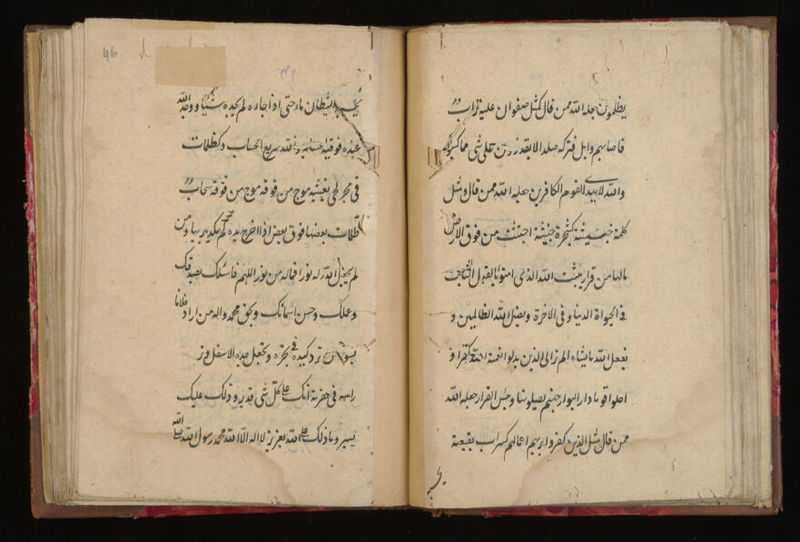 يظلمون جعله الله ممن قال كمثل صفوان عليه تراب
فاصابهم وابل فتركه صلدا لا يقدرون على شى مما كسبوا
والله لا يهدى القوم الكافرين جعله الله ممن قال ومثل
كلمة خبيثة كشجرة خبيثة اجتثت من فوق الارض
مالها من قرار يثبت الله الذى امنوا بالقول الثابت
فى الحيواة الدنيا و فى الاخرة ويضل الله الظالمين و
يفعل الله ما يشاء الم تر الى الذين بدلوا نعمة الله كفرا و
احلوا قوما دار البوار جهنم يصلونها وبئس القرار جعله الله
ممن قال مثل الذين كفروا بربهم اعمالهم كسراب بقيعة
46
الظمان ماء حتى اذا جاءه لم يجده شيئا ووجد الله
عنده فوفيه حسابه والله سريع الحساب وكظلمات
فى بحر لجى يغشيه موج من فوقه موج من فوقه سحاب
ظلمات بعضها فوق بعض اذا اخرج يده لم يكد يريها ومن
لم يجعل الله له نورا فماله من نور اللهم فاسئلك بصدقك
وعلمك وحسن اسمائك وبحق محمد واله من اراد فلانا
بسوء ان ترد كيده فى نحره وتجعل خده الاسفل و
راسه فى حفرته انك على كل شى قدير وذلك عليك
يسير وما ذلك على الله بعزيز لا اله الا الله محمد رسول الله